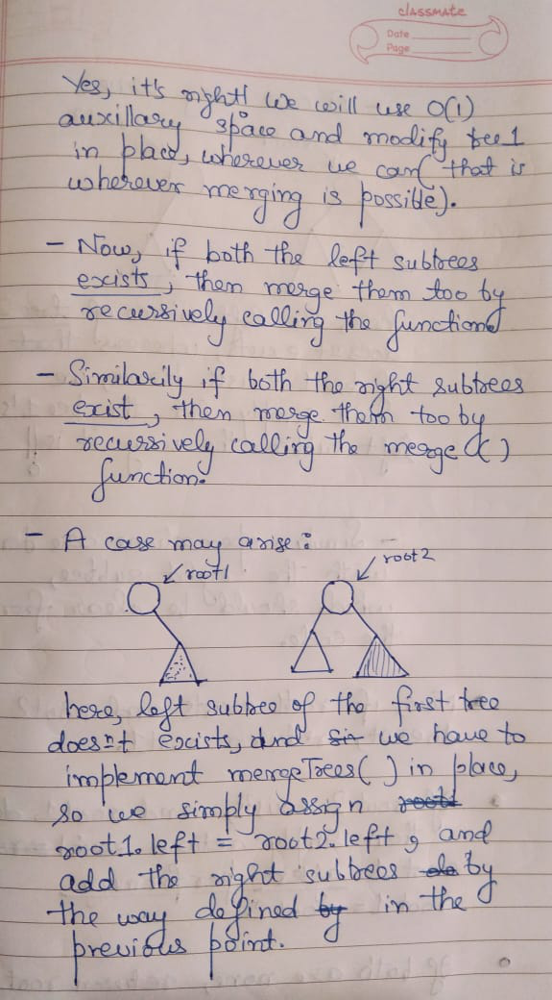 classmate
Date
Page
Yes, it's right! We will use O(1)
auxillary space and modify tree1
in place, wherever we can( that is
wherever merging is possible).
- Now, if both the left subtrees
exists, then merge them too by
recursively calling the function
- Similarily if both the right subtrees
exist, then merge them too by
recursively calling the merge()
function.
- A case may arise:
root1
root2
here, left subtree of the first tree
doesn't exists, and we have to
implement mergeTrees() in place,
so we simply assign
root1.left = root2.left, and
add the right subtrees by
the way defined in the
previous point.